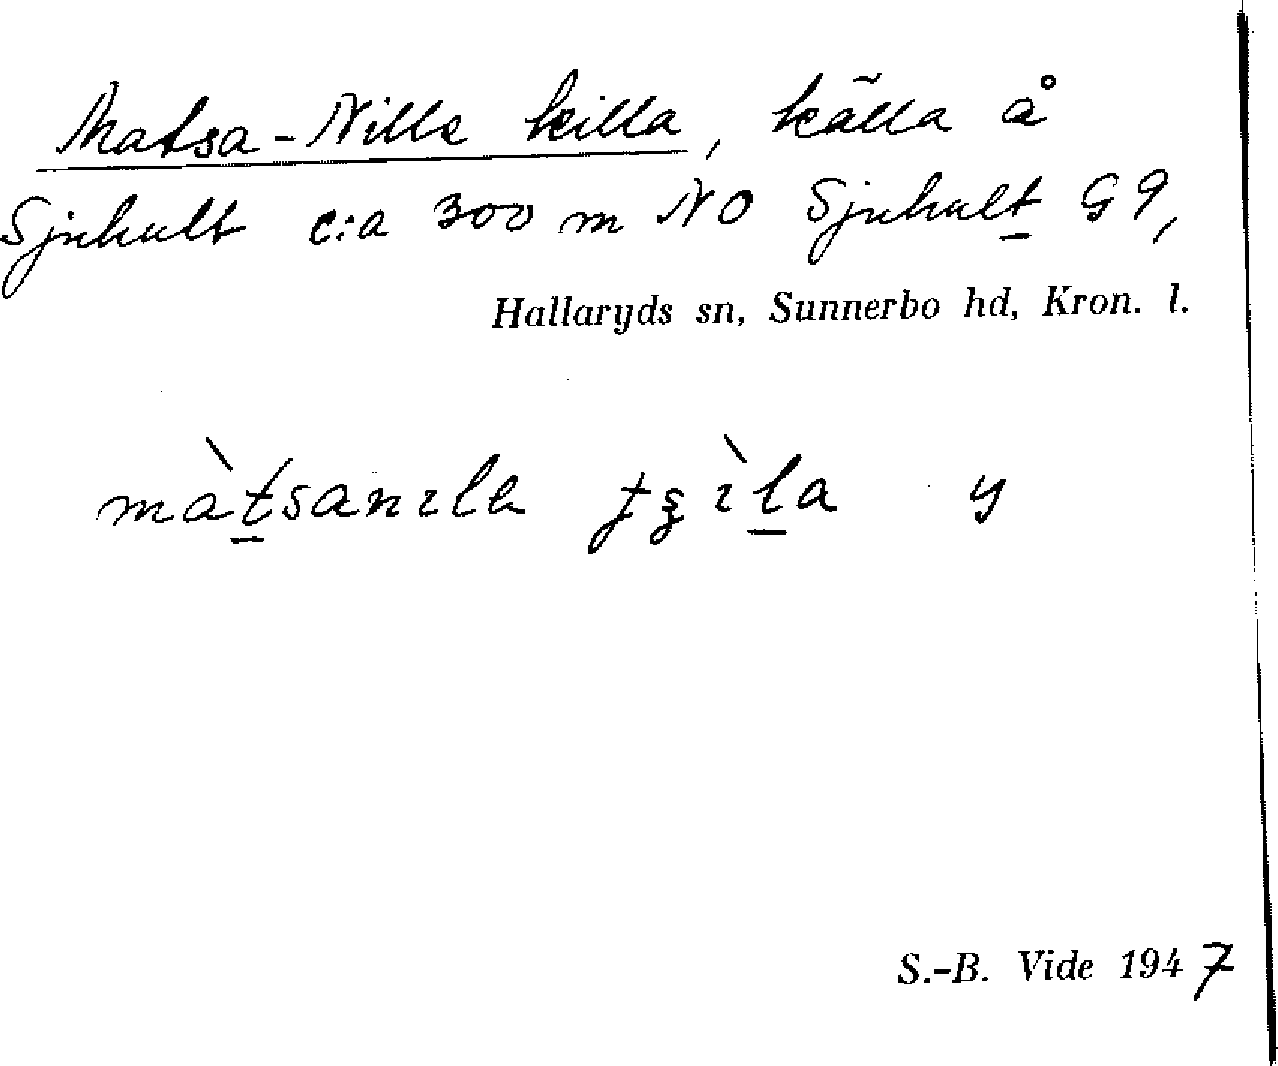 Matsa-Nilla killa, källa å
Sjuhult c:a 300 m NO Sjuhult G9,
Hallaryds sn, Sunnerbo hd, Kron. l.
màt̲sanɩla ɟʓɩ̀l̲a y
S.-B. Vide 1947